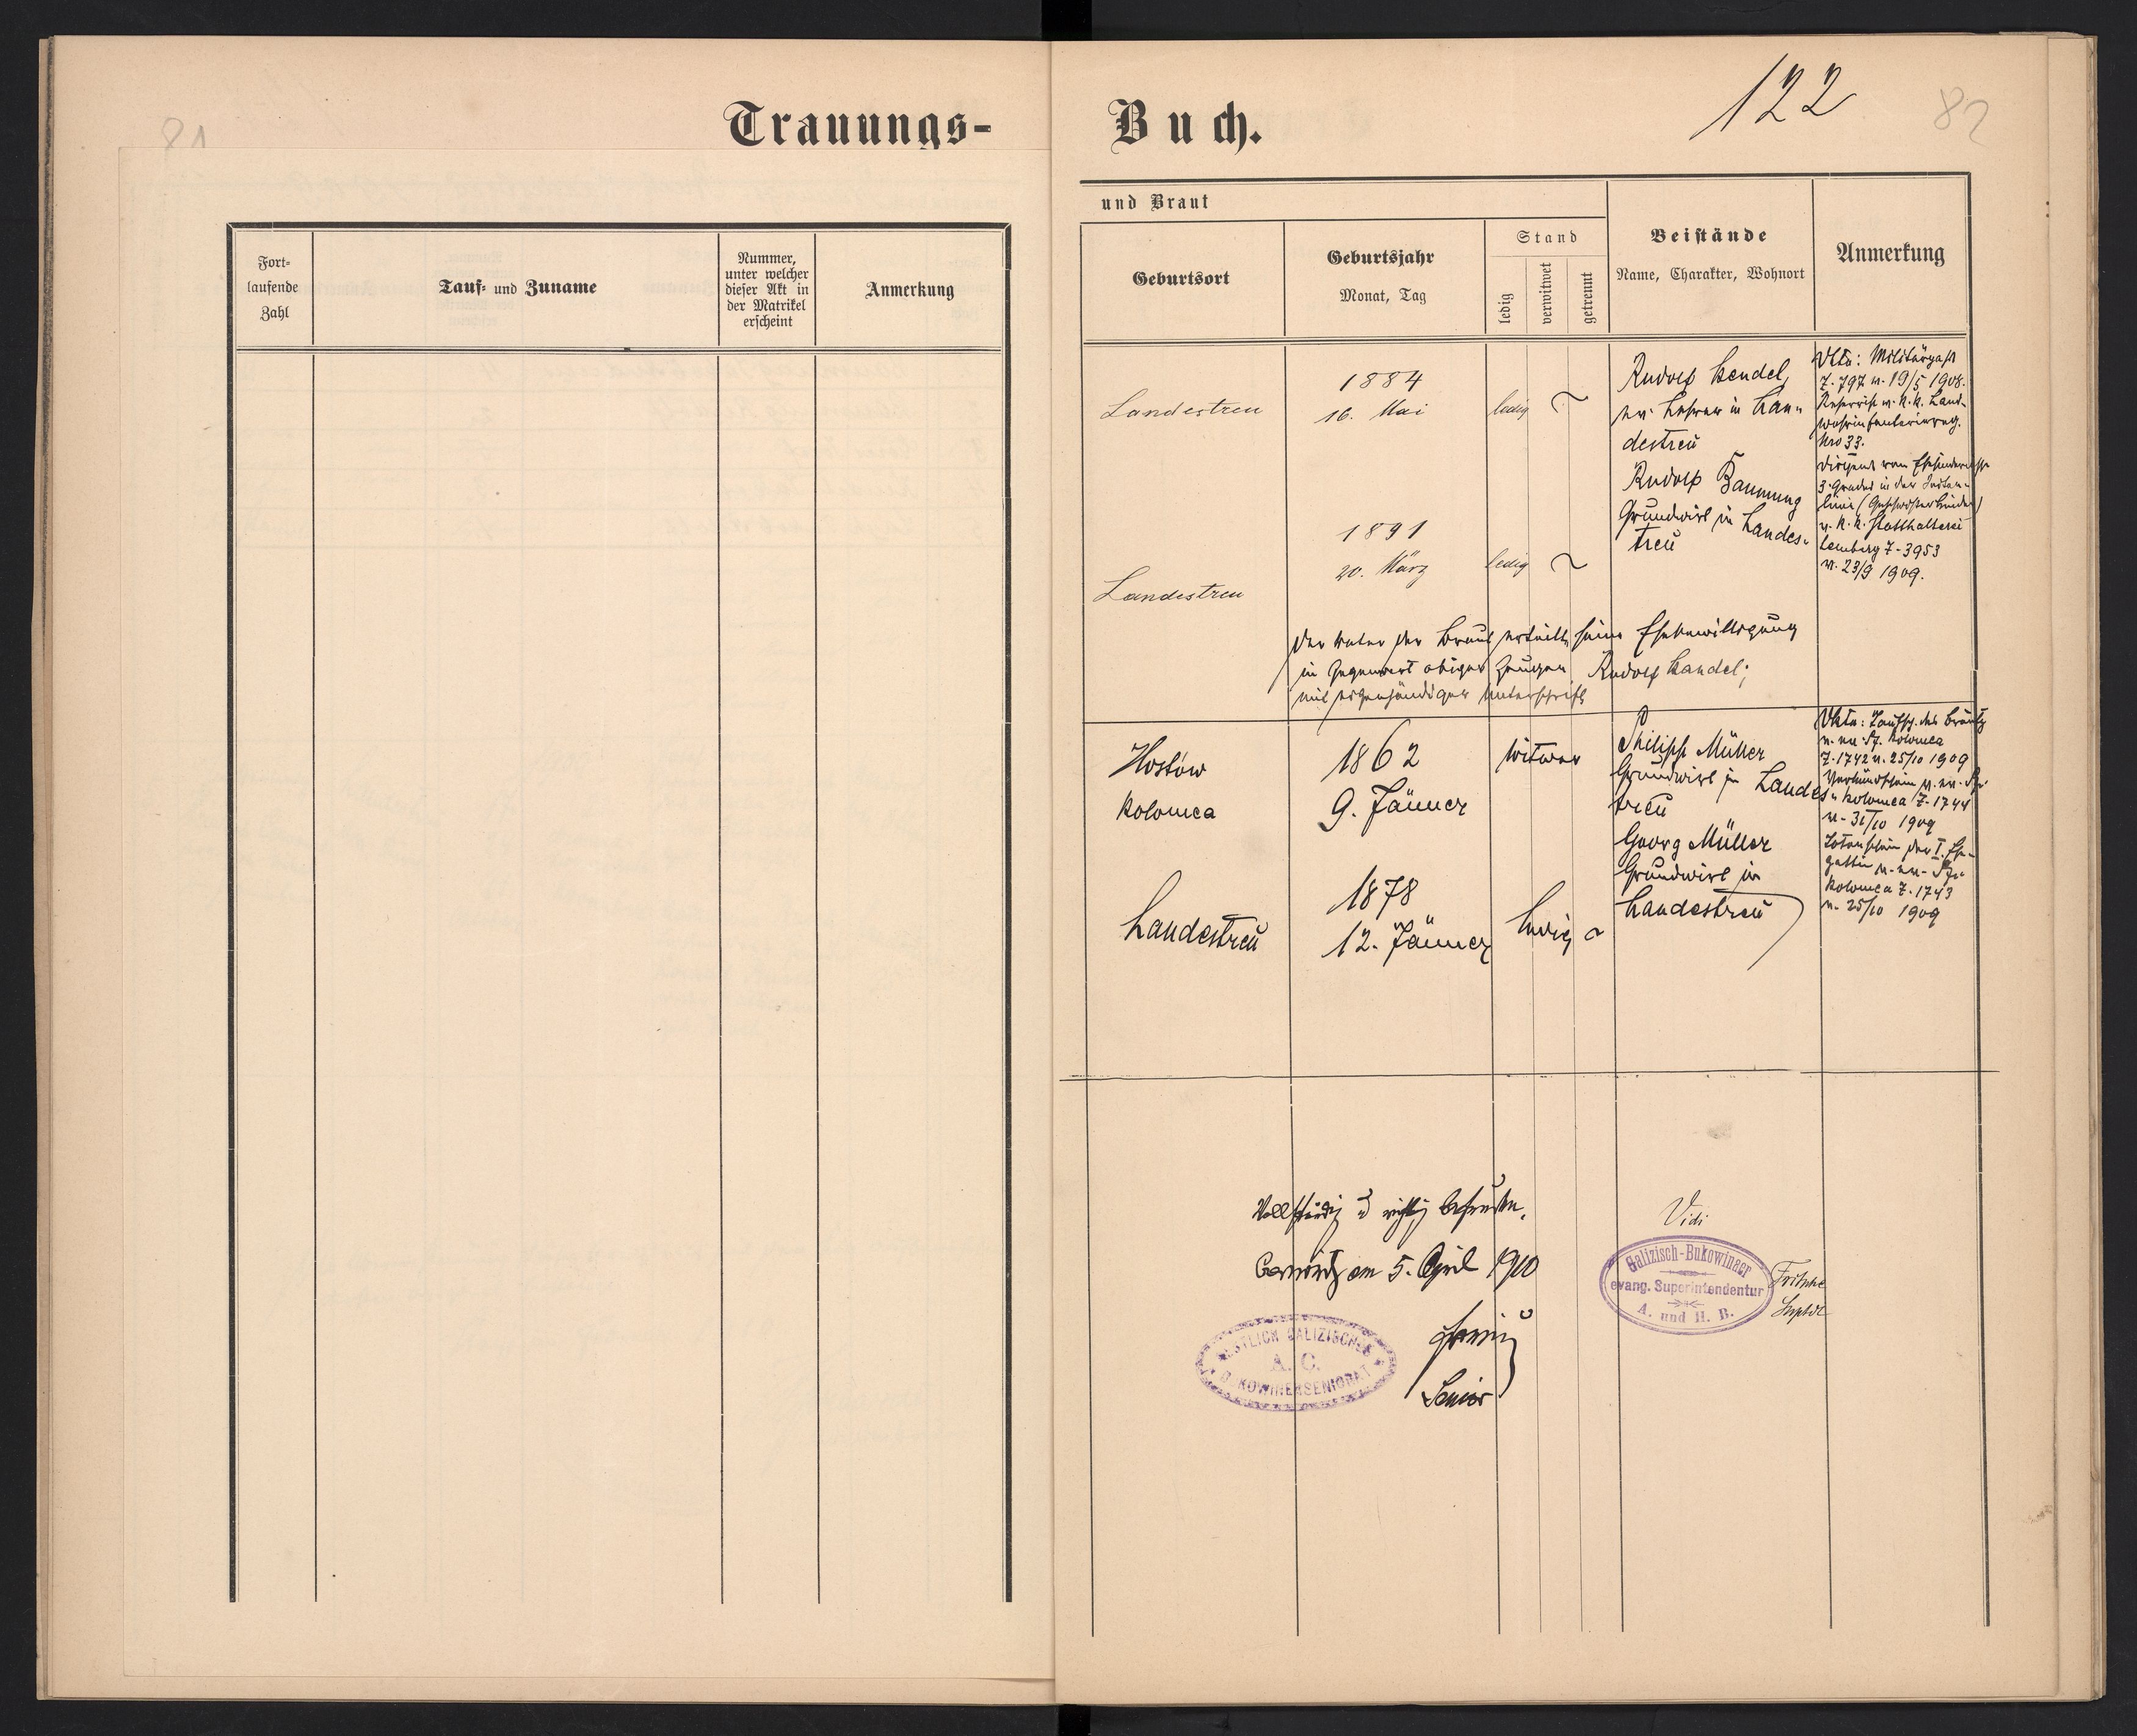 Trauungs-
81
Fort-
laufende
Zahl
Tauf- und Zuname
Nummer,
unter welcher
dieser Akt in
der Matrikel
erscheint
Anmerkung
Buch.
122
82
und Braut
Geburtsort
Geburtsjahr
Monat, Tag
Stand
ledig
verwitwet
getrennt
Beistände
Name, Charakter, Wohnort
Anmerkung
Landestreu
1884
16. Mai
ledig
Rudolf Kendel,
ev. Lehrer in Lan-
destreu
Rudolf Baumung
Grundwirt in Landes-
treu
Z. 797 v. 19/5 1908.
Reservist k. k. Land-
wehrinfanteriereg.
Nro 33.
3. Grades in der Seiten-
linie (Geschwisterkinder)
v. k. k. Statthalterei
Lemberg Z. 3953
v. 23/9 1909.
Landestreu
1891
20. März
ledig
Der Vater der Braut erteilt seine Ehebewilligung
in Gegenwart obiger Zeugen Rudolf Kandel;
mit eigenhändiger Unterschrift
Hostów
Kolomea
1862
9. Jänner
Witwer
Philipp Müller
Grundwirt in Landes-
treu
Georg Müller
Grundwirt in
Landestreu
Taufsch. des Bräutig
Kolomea
Z. 1742 v. 25/10 1909
Kolomea Z. 1744
v. 31/10 1909
Totenschein der I. Ehe-
gattin
Kolomea Z. 1743
v. 25/10 1909
Landestreu
1878
12. Jänner
ledig
Vollständig u richtig befunden.
am 5. April 1910
Senior
ÖSTLICH GALIZISCHES
A. C.
BUKOWINER SENIORAT
Vidi
Galizisch-Bukowinaer
evang. Superintendentur
A. und H. B.
Fritsche
Suptdt